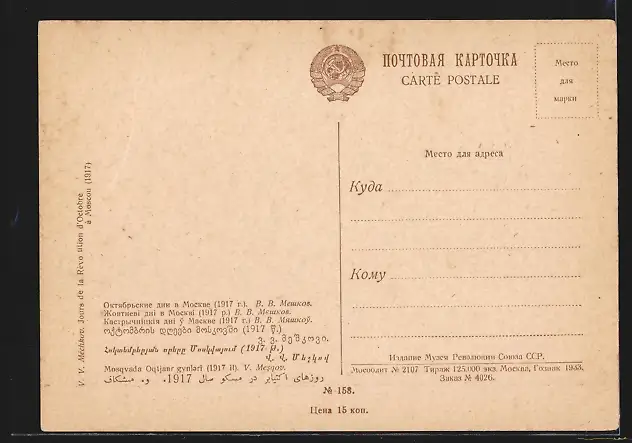 ПОЧТОВАЯ КАРТОЧКА
CARTE POSTALE
Место
для
марки
Место для адреса
Куда
Кому
V. V. Mechkov. Jours de la Révo ution d'Octobre
à Moscou (1917)
Октябрьские дни в Москве (1917 г.). В. В. Мешков.
Жовтневі дні в Москві (1917 р.) В. В. Мешков.
Кастрычніцкія дні ў Маскве (1917 г.) В. В. Мяшкоў.
ოქტომბრის დღეები მოსკოვში (1917 წ.)
ვ. ვ. მეშკოვი.
Հոկտեմբերյան որերը Մոսկվայում (1917 թ.)
Վ. Վ. Մեշկով
Mosqvada Oqtjaвr gynləri (1917 il). V. Meşqov.
روزهای اکتیابر در مسکو سال 1917. و. مشکاف
№ 158.
Цена 15 коп.
Издание Музея Революции Союза ССР.
Мособлит № 2107 Тираж 125.000 экз. Москва, Гознак 1933.
Заказ № 4026.